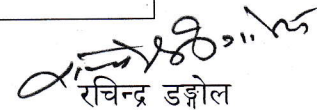 रचिन्द्र डङ्गोल